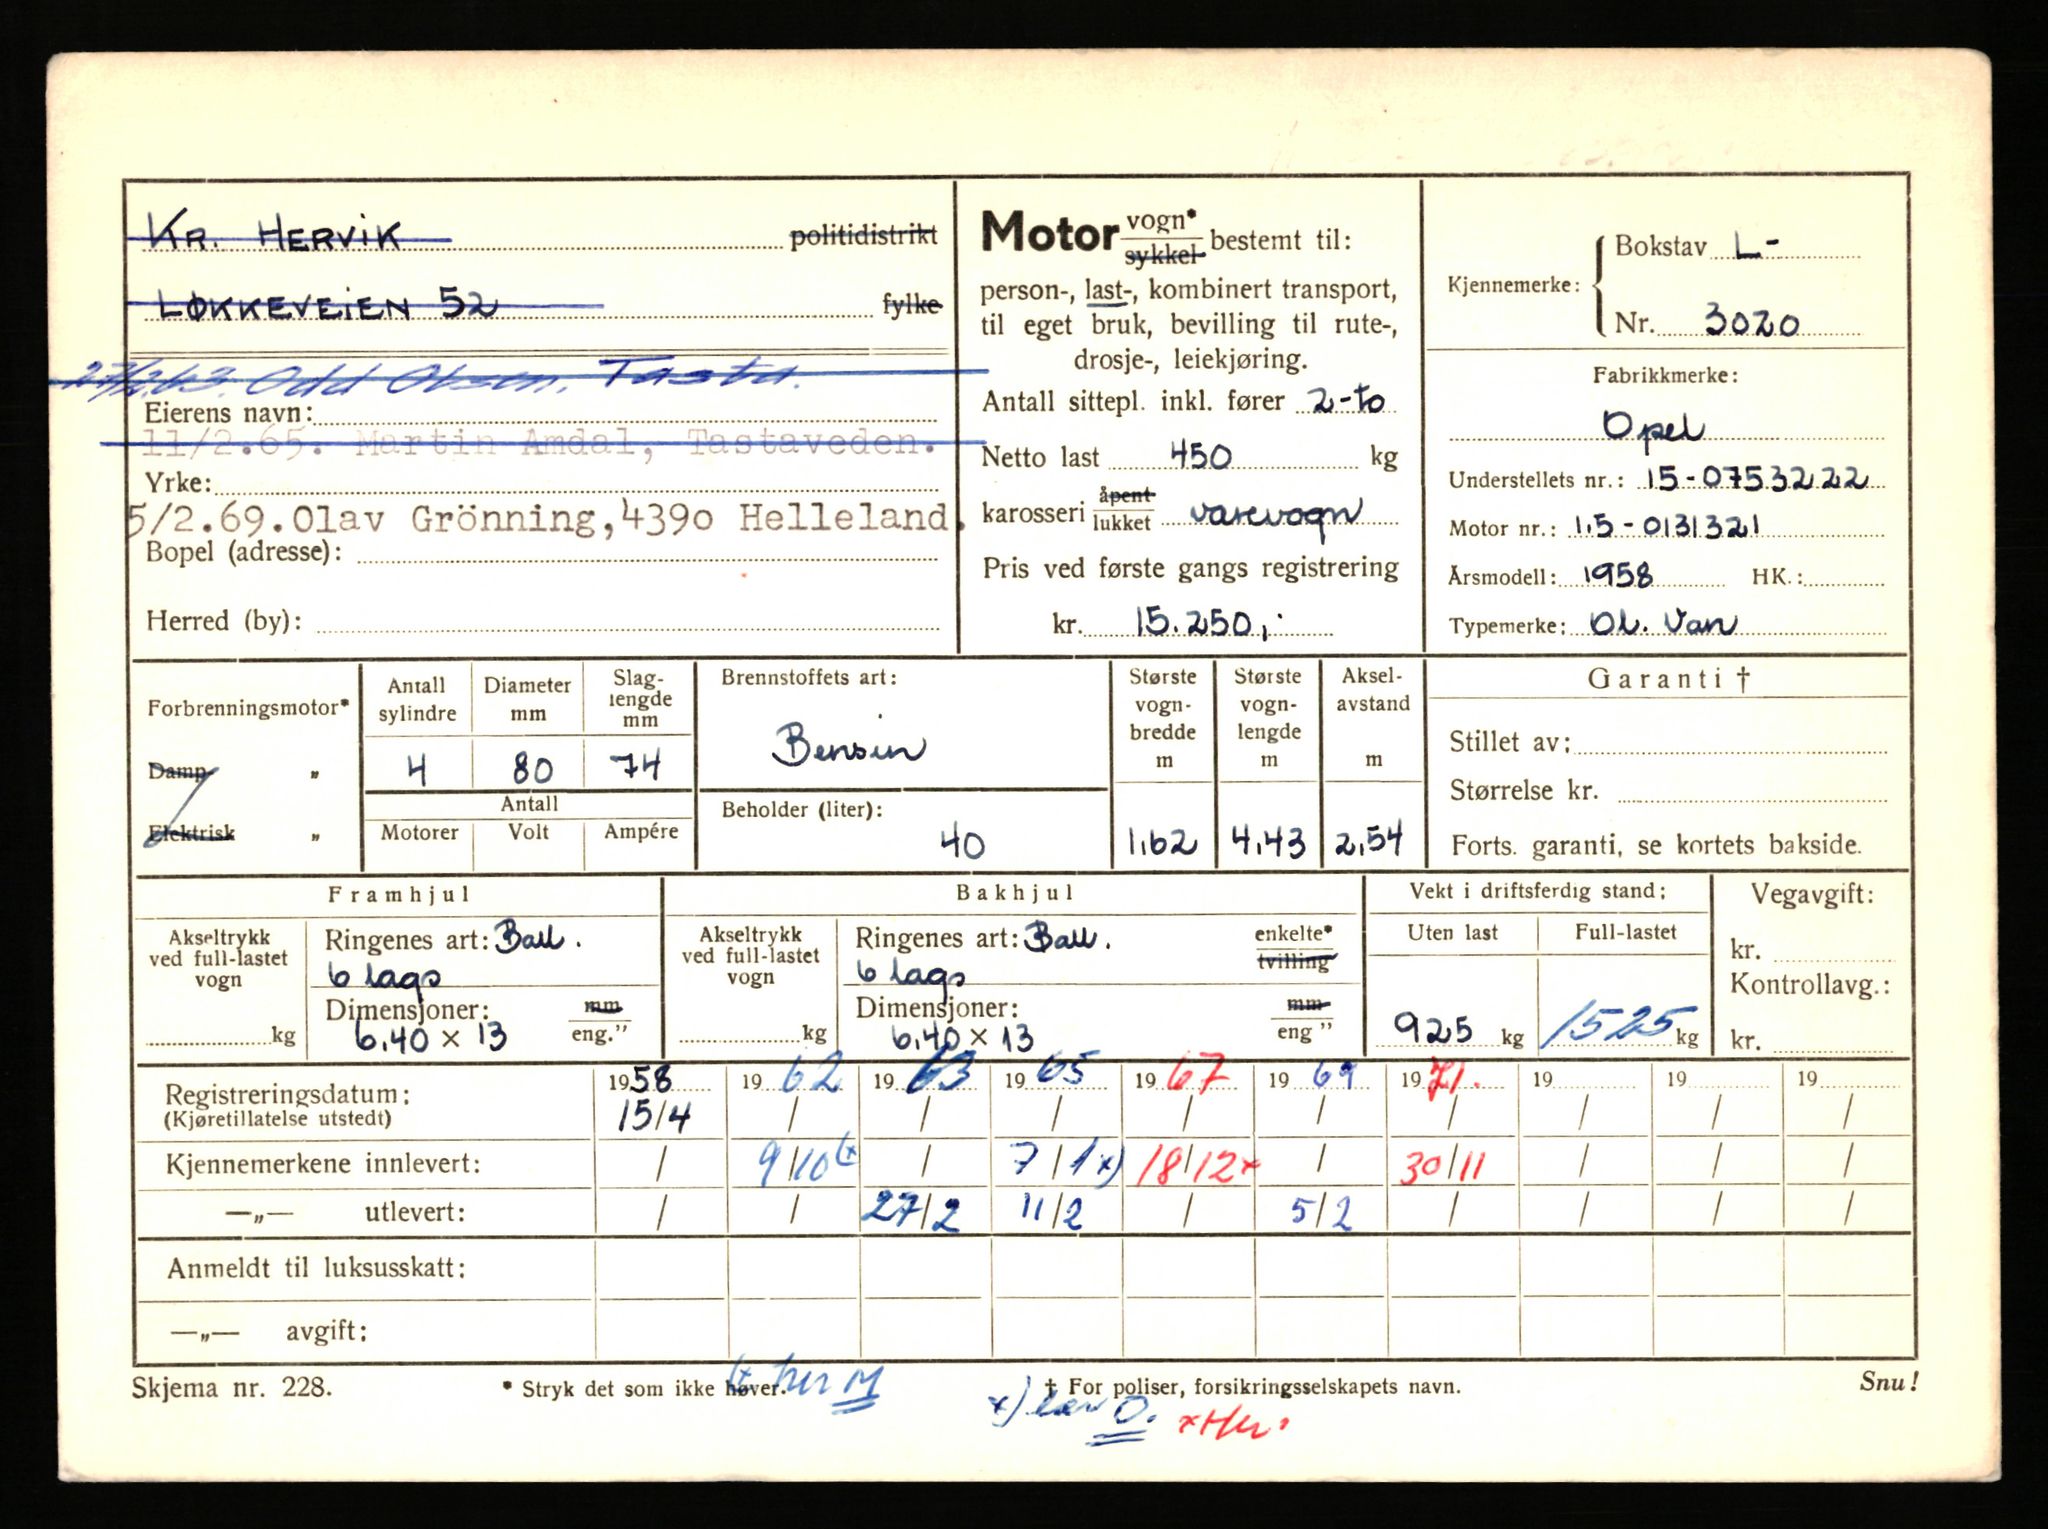 Kr. Hervik politidistrikt
Løkkeveien 52 fylke
27/2.63. Odd Olsen, Tasta.
Eierens navn:
11/2.65. Martin Amdal, Tastaveden.
Yrke:
5/2.69.Olav Grönning,4390 Helleland.
Bopel (adresse):
Herred (by):
Motor vogn* sykkel bestemt til:
person-, last-, kombinert transport,
til eget bruk, bevilling til rute-,
drosje-, leiekjøring.
Antall sittepl. inkl. fører 2-to
Netto last 450 kg
karosseri åpent lukket varevogn
Pris ved første gangs registrering
kr. 15.250,-
Kjennemerke: Bokstav L-
Nr. 3020
Fabrikkmerke:
Opel
Understellets nr.: 15-0753222
Motor nr.: 1,5-0131321
Årsmodell: 1958 HK.:
Typemerke: Ol. Van
Forbrenningsmotor*
Damp "
Elektrisk "
Antall sylindre 4
Diameter mm 80
Slaglengde mm 74
Antall
Motorer Volt Ampére
Brennstoffets art:
Bensin
Beholder (liter):
40
Største vogn-bredde m 1,62
Største vogn-lengde m 4,43
Aksel-avstand m 2,54
Garanti †
Stillet av:
Størrelse kr.
Forts. garanti, se kortets bakside.
Framhjul
Akseltrykk ved full-lastet vogn kg
Ringenes art: Ball.
6 lags
Dimensjoner: mm eng."
6,40 x 13
Bakhjul
Akseltrykk ved full-lastet vogn kg
Ringenes art: Ball. enkelte* tvilling
6 lags
Dimensjoner: mm eng "
6,40 x 13
Vekt i driftsferdig stand:
Uten last Full-lastet
925 kg 1525 kg
Vegavgift:
kr.
Kontrollavg.:
kr.
Registreringsdatum: 1958 1962 1963 1965 1967 1969 1971. 19 19 19
(Kjøretillatelse utstedt) 15/4 / / / / / / / / /
Kjennemerkene innlevert: / 9/10 (x / 7/1 x) 18/12 x / 30/11 / / /
—„— utlevert: / / 27/2 11/2 / 5/2 / / / /
Anmeldt til luksusskatt:
—„— avgift:
Skjema nr. 228. * Stryk det som ikke høver. † For poliser, forsikringsselskapets navn. Snu!
(x her M
x) lev O. x Her